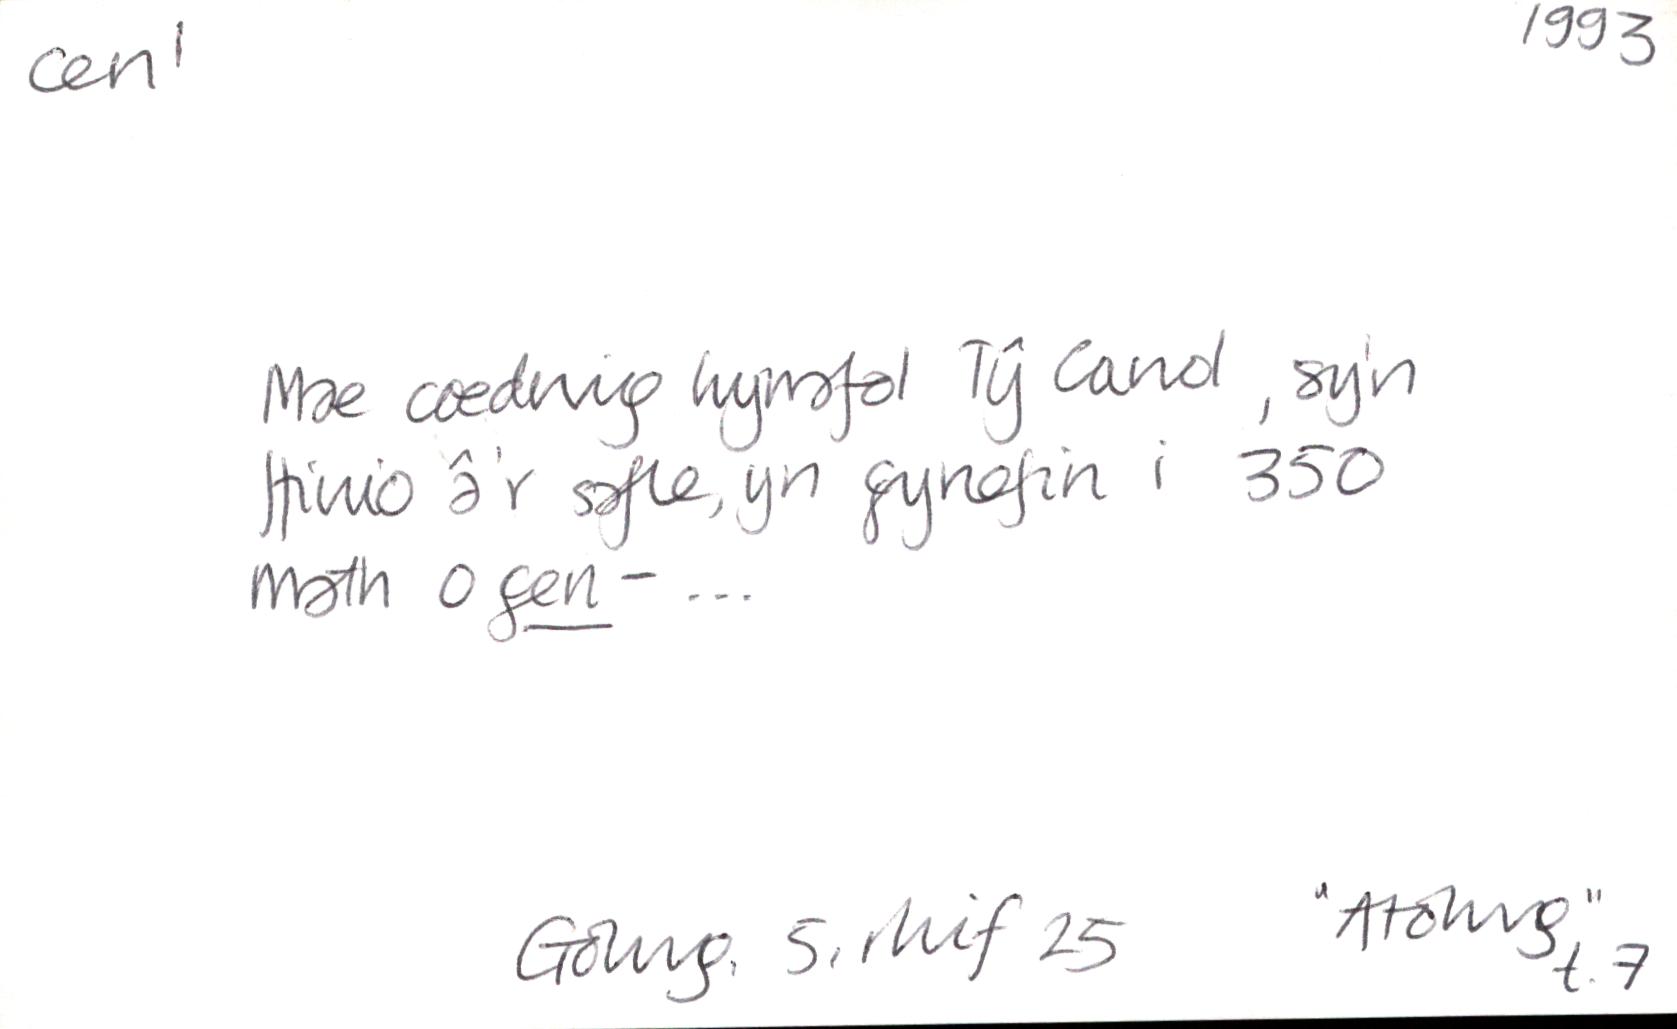 cen¹
1993
Mae coedwig hynafol Tŷ Canol, sy'n
ffinio â'r safle, yn gynefin i 350
math o gen - ...
Golwg. 5, rhif 25
"Atolwg"
t. 7